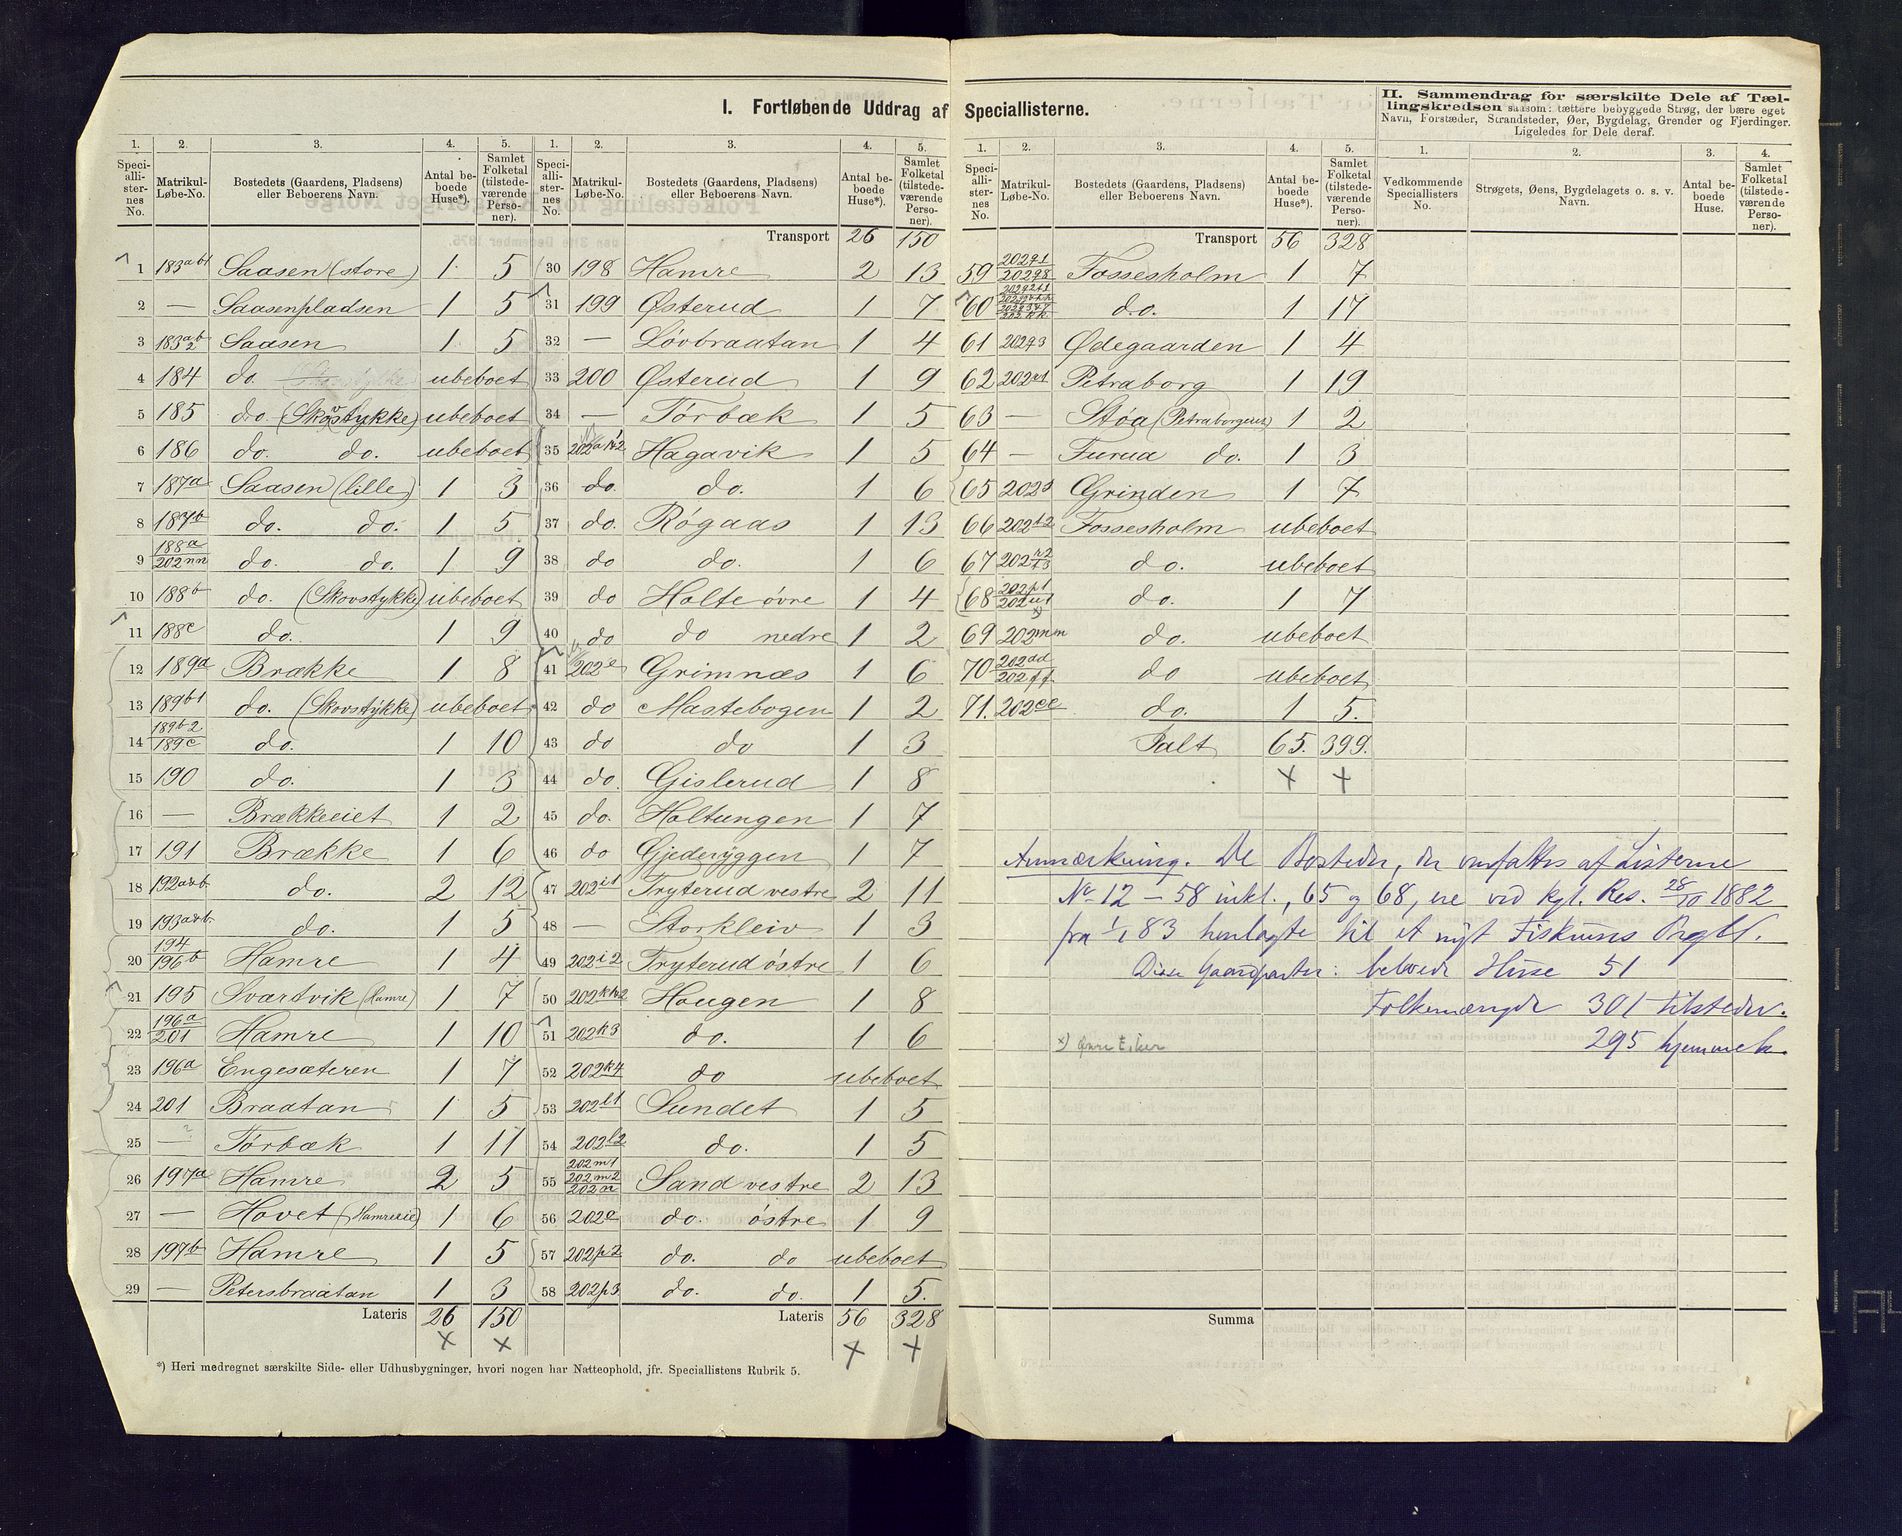 I. Fortløbende Uddrag af Speciallisterne.
II. Sammendrag for særskilte Dele af Tællingskredsen saasom: tættere bebyggede Strøg, der bære eget
Navn, Forstæder, Strandsteder, Øer, Bygdelag, Grender og Fjerdinger.
Ligeledes for Dele deraf.
1. 2. 3. 4. 5. 1. 2. 3. 4. 5. 1. 2. 3. 4. 5. 1. 2. 3. 4.
Speciallisternes No. Matrikul-Løbe-No. Bostedets (Gaardens, Pladsens) eller Beboerens Navn. Antal beboede Huse*). Samlet Folketal (tilstedeværende Personer).
Speciallisternes No. Matrikul-Løbe-No. Bostedets (Gaardens, Pladsens) eller Beboerens Navn. Antal beboede Huse*). Samlet Folketal (tilstedeværende Personer).
Speciallisternes No. Matrikul-Løbe-No. Bostedets (Gaardens, Pladsens) eller Beboerens Navn. Antal beboede Huse*). Samlet Folketal (tilstedeværende Personer).
Vedkommende Speciallisters No. Strøgets, Øens, Bygdelagets o. s. v. Navn. Antal beboede Huse. Samlet Folketal (tilstedeværende Personer).
1 183ab1 Saasen (store) 1 5
2 — Saasenpladsen 1 5
3 183ab2 Saasen 1 5
4 184 do. ubeboet
5 185 do. (Skovstykke) ubeboet
6 186 do. do. ubeboet
7 187a Saasen (lille) 1 3
8 187b do. do. 1 5
9 188a 202nn do. do. 1 9
10 188b do. (Skovstykke) ubeboet
11 188c do. 1 9
12 189a Brække 1 8
13 189b1 do. (Skovstykke) ubeboet
14 189b2 189c do. 1 10
15 190 do. 1 3
16 — Brækkeeiet 1 2
17 191 Brække 1 6
18 192a&b do. 2 12
19 193a&b do. 1 5
20 194 196b Hamre 1 4
21 195 Svartvik (Hamre) 1 7
22 196a 201 Hamre 1 10
23 196a Engesæteren 1 7
24 201 Braatan 1 5
25 — Tørbæk 1 11
26 197a Hamre 2 5
27 — Hovet (Hamreeie) 1 6
28 197b Hamre 1 5
29 — Petersbraatan 1 3
Lateris 26 150
Transport 26 150
30 198 Hamre 2 13
31 199 Østerud 1 7
32 — Løvbraatan 1 4
33 200 Østerud 1 9
34 — Tørbæk 1 5
35 Hagavik 1 5
36 do. do. 1 6
37 do. Røgaas 1 13
38 do do. 1 6
39 do Holte øvre 1 4
40 do do nedre 1 2
41 202e Grimnæs 1 6
42 do Mastebogen 1 2
43 do do 1 3
44 do. Gislerud 1 8
45 do. Holtungen 1 7
46 do Gjederyggen 1 7
47 202i1 Tryterud vestre 2 11
48 — Storkleiv 1 3
49 202i2 Tryterud østre 1 6
50 202kk2 Haugen 1 8
51 202k3 do. 1 6
52 202k4 do ubeboet
53 202l1 Sundet 1 5
54 202l2 do. 1 5
55 202m1 202m2 202n Sand vestre 2 13
56 202o do. østre 1 9
57 202p2 do. do ubeboet
58 202p3 do. do. 1 5.
Lateris 56 328
Transport 56 328
59 202q1 202q8 Fossesholm 1 7
60 do. 1 17
61 202q3 Ødegaarden 1 4
62 202r1 Petraborg 1 19
63 — Støa (Petraborgeiet) 1 2
64 — Furua do. 1 3
65 202s Grinden 1 7
66 202t2 Fossesholm ubeboet
67 do. ubeboet
68 202p1 202u1 do. 1 7
69 202mm do. ubeboet
70 202dd 202ff do ubeboet
71. 202ee do. 1 5.
Ialt 65. 399.
Anmærkning. De Bosteder, der omfattes af Listerne
No 12 – 58 inkl., 65 og 68, ere ved kgl. Res. 28/10 1882
fra 1/1 83 henlagte til et nyt Fiskums Prgld.
Disse Gaardparter: beboede Huse 51
Folkemængde 301 tilstedev.
295 hjemmeh.
x) Øvre Eiker
Summa
*) Heri medregnet særskilte Side- eller Udhusbygninger, hvori nogen har Natteophold, jfr. Speciallistens Rubrik 5.